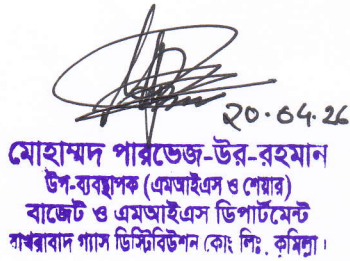 20.04.26
মোহাম্মদ পারভেজ-উর-রহমান
উপ-ব্যবস্থাপক (এমআইএস ও শেয়ার)
বাজেট ও এমআইএস ডিপার্টমেন্ট
বাখরাবাদ গ্যাস ডিস্ট্রিবিউশন কোং লিঃ, কুমিল্লা।